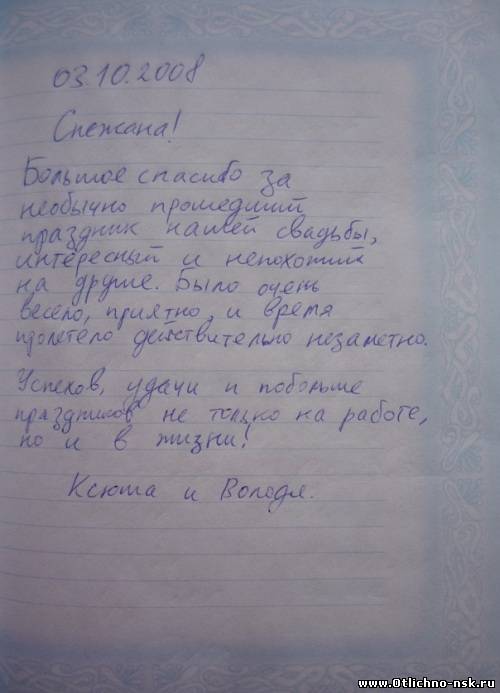 03.10.2008
Снежана!
Большое спасибо за
необычно прошедший
праздник нашей свадьбы,
интересный и непохожий
на другие. Было очень
весело, приятно, и время
пролетело действительно незаметно.
Успехов, удачи и побольше
праздников не только на работе,
но и в жизни!
Ксюша и Володя.
www.Otlichno-nsk.ru